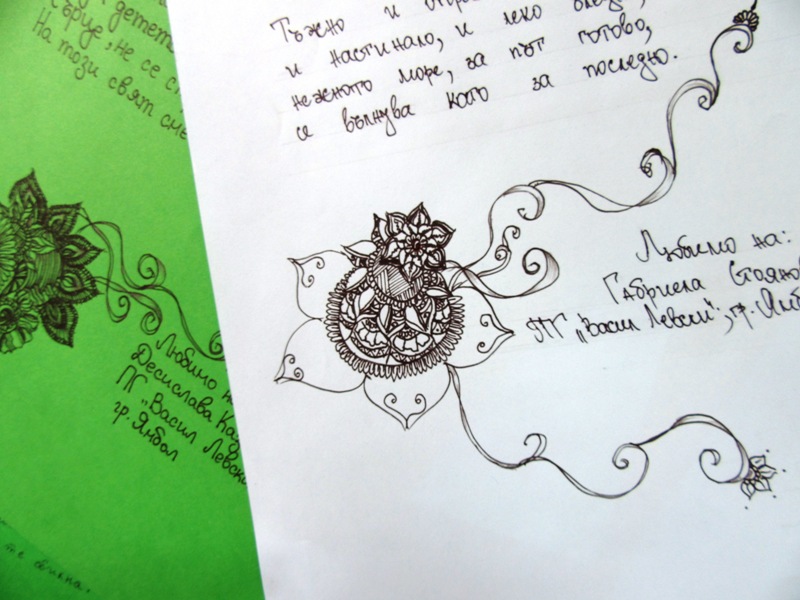 детет
сърце, не се с
На този свят сме
Любимо на
Десислава Каз
ПГ „Васил Левски
гр. Ямбол
Тъжно и
и настинало, и леко
нежното море, за път готово,
се вълнува като за последно.
Любимо на:
Габриела Стоянов
ПГ „Васил Левски“, гр. Ямб